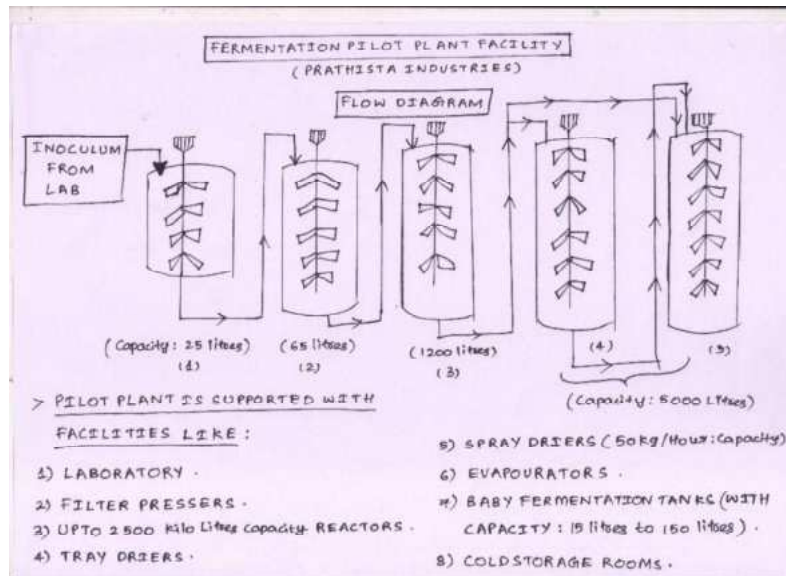 FERMENTATION PILOT PLANT FACILITY
(PRATHISTA INDUSTRIES)
FLOW DIAGRAM
INOCULUM
FROM
LAB
(Capacity: 25 litres)
(1)
(65 litres)
(2)
(1200 litres)
(3)
(4)
(5)
(Capacity: 5000 Litres)
> PILOT PLANT IS SUPPORTED WITH
FACILITIES LIKE:
1) LABORATORY.
2) FILTER PRESSERS.
3) UPTO 2500 Kilo Litres Capacity REACTORS.
4) TRAY DRIERS.
5) SPRAY DRIERS (50kg/Hour: Capacity)
6) EVAPOURATORS.
7) BABY FERMENTATION TANKS (WITH
CAPACITY: 15 litres to 150 litres).
8) COLDSTORAGE ROOMS.